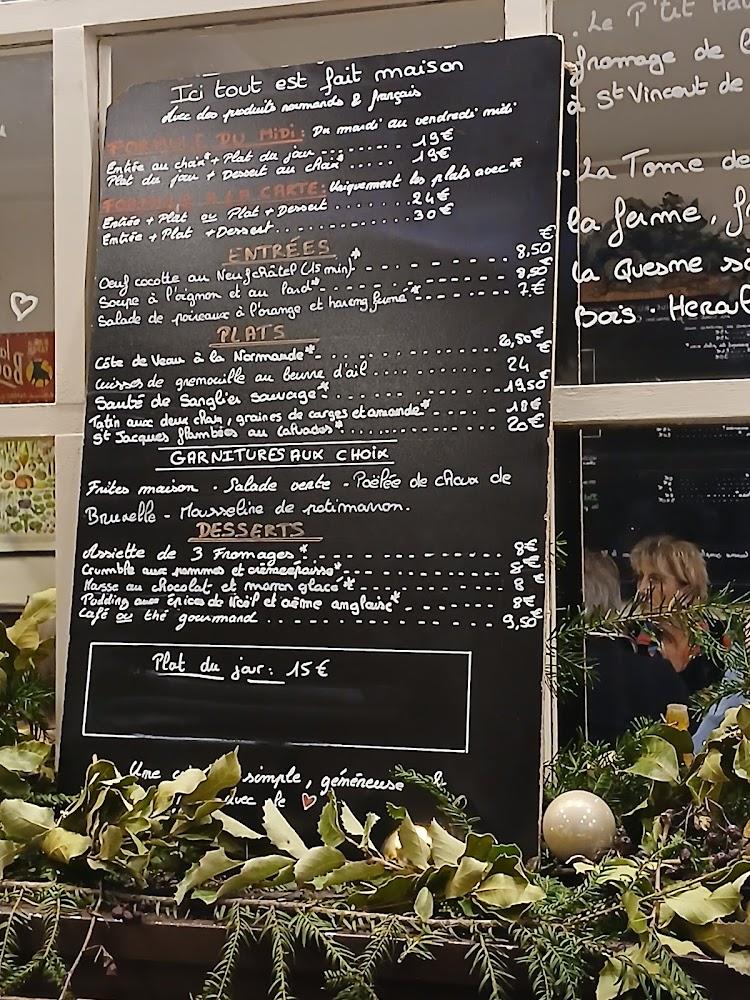 Ici tout est fait maison
avec des produits normands & français
FORMULE DU MIDI : Du mardi au vendredi midi
Entrée au choix* + Plat du jour ......... 19€
Plat du jour + Dessert au choix* ..... 19€
FORMULE A LA CARTE : Uniquement les plats avec *
Entrée + Plat ou Plat + Dessert ......... 24€
Entrée + Plat + Dessert ............... 30€
ENTRÉES
Oeuf cocotte au Neufchâtel (15 min)* 8,50€
Soupe à l'oignon et au lard* 8,50€
Salade de poireaux à l'orange et hareng fumé* 7€
PLATS
Côte de Veau à la Normande* 20,50€
Cuisses de grenouille au beurre d'ail 24€
Sauté de Sanglier sauvage* 19,50€
Tatin aux deux chou, graines de courges et amande* 18€
St Jacques flambées au Calvados* 20€
GARNITURES AUX CHOIX
Frites maison - Salade verte - Poêlée de choux de
Bruxelle - Mousseline de potimarron.
DESSERTS
Assiette de 3 Fromages* 8€
Crumble aux pommes et crème épaisse* 8€
Mousse au chocolat et marron glacé* 8€
Pudding aux épices de Noël et crème anglaise* 8€
Café ou thé gourmand 9,50€
Plat du jour : 15€
Une simple, généreuse
avec le ♡
. Le P'tit
fromage de
à St Vincent de
. La Tome de
la ferme,
la Quesme
Bois .